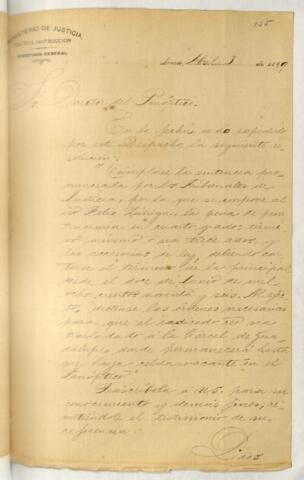 MINISTERIO DE JUSTICIA
DIRECCIÓN GENERAL
125
Lima, Abril 3 de 1899
Sr. Director del Panóptico.
En la fecha se ha expedido
por este Despacho la siguiente
"Cúmplase la sentencia pro-
nunciada por los Tribunales de
Justicia, por la que se impone al
reo Zúñiga, la pena de peni-
tenciaría en cuarto grado, térmi-
no mínimo ó sea trece años, y
las accesorias de ley, debiendo con-
tarse el término de la principal
desde el doce de Junio de mil
ocho cientos noventa y seis. Al efec-
to, díctense las órdenes necesarias
para que el indicado reo sea
trasladado á la Cárcel de Gua-
dalupe, donde permanecerá hasta
que haya celda vacante en el
Panóptico"
Trascríbola á US. para su
conocimiento y demás fines, re-
mitiéndole el testimonio de su
referencia.
Dios